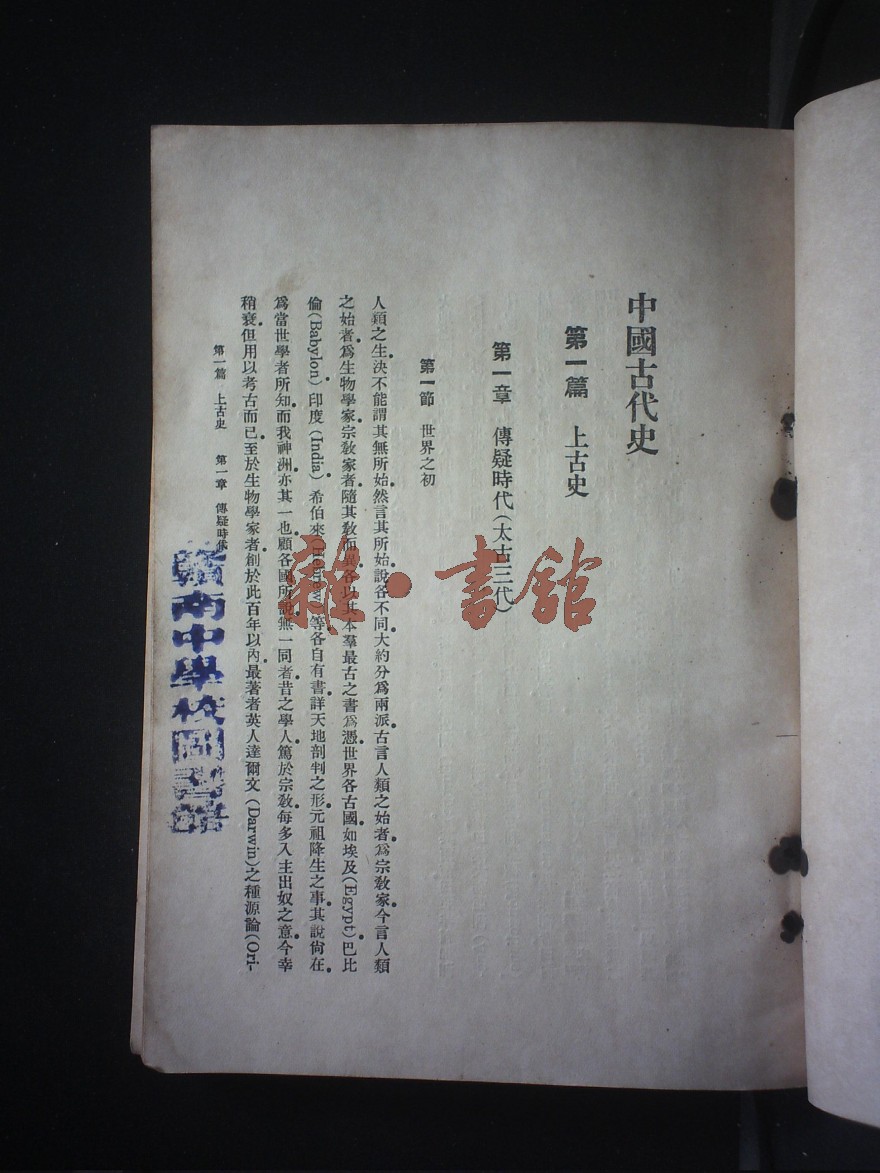 中國古代史
第一篇　上古史
第一章　傳疑時代（太古三代）
第一節　世界之初
人類之生決不能謂其無所始然言其所始說各不同大約分爲兩派古言人類之始者爲宗敎家今言人類
之始者爲生物學家宗敎家者隨其敎而異各以其本羣最古之書爲憑世界各古國如埃及(Egypt)巴比
倫(Babylon)印度(India)希伯來(Hebrew)等各自有書詳天地剖判之形元祖降生之事其說尙在
爲當世學者所知而我神洲亦其一也顧各國所說無一同者昔之學人篤於宗敎每多入主出奴之意今幸
稍衰但用以考古而已至於生物學家者創於此百年以內最著者英人達爾文(Darwin)之種源論(Ori-
第一篇　上古史　第一章　傳疑時代
南中學校圖書館
雜·書館